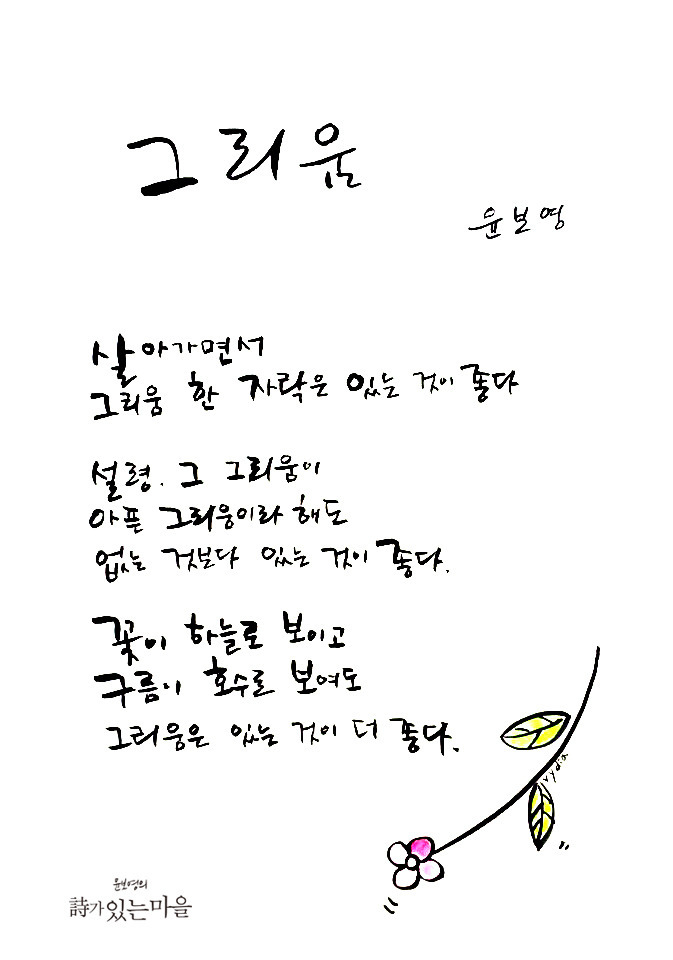 그리움
윤보영
살아가면서
그리움 한 자락은 있는 것이 좋다
설령. 그 그리움이
아픈 그리움이라 해도
없는 것보다 있는 것이 좋다.
꽃이 하늘로 보이고
구름이 호수로 보여도
그리움은 있는 것이 더 좋다.
윤보영의
詩가 있는 마을